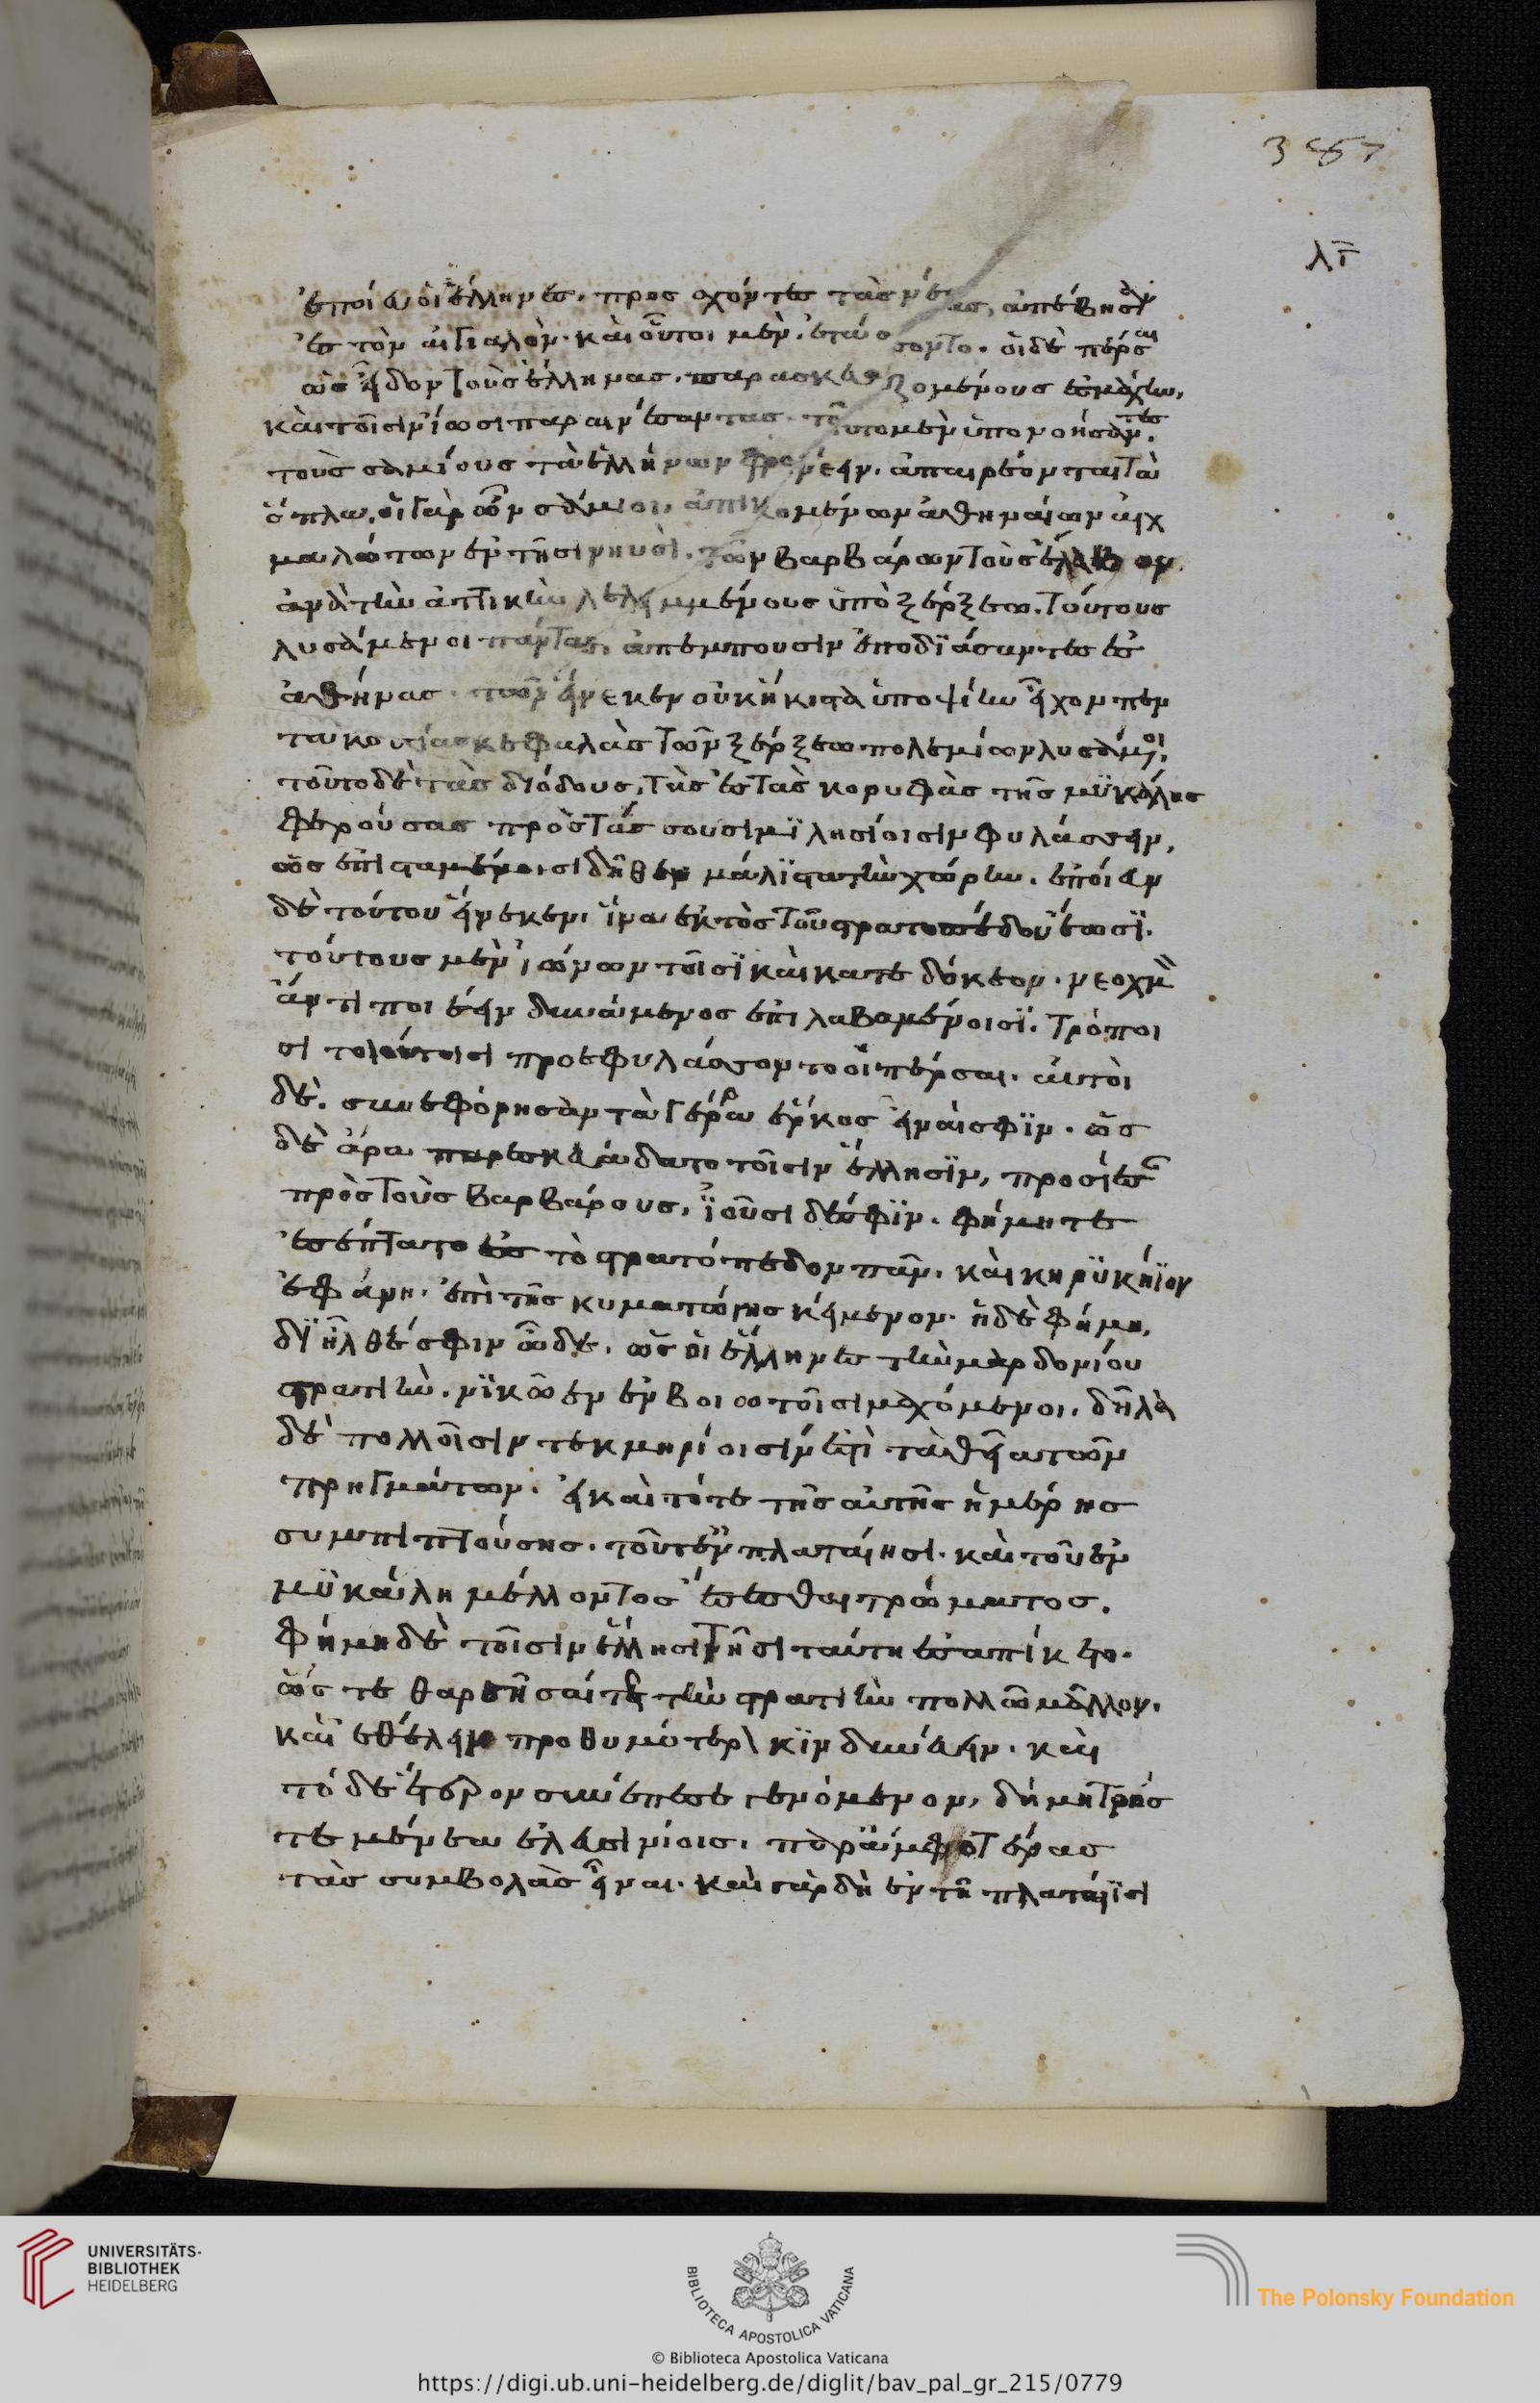 387
λς
ἐποίευν οἱ ἕλληνες. προσχόντες τὰς νέας, ἀπέβησαν
ἐς τὸν αἰγιαλόν. καὶ οὗτοι μὲν ἐτάσσοντο. οἱ δὲ πέρσαι
ὡς εἶδον τοὺς ἕλληνας παρασκευαζομένους ἐς μάχην,
καὶ τοῖσιν ἴωσι παραινέσαντας. τοῦτο μὲν ὑπονοήσαντες
τοὺς σαμίους τὰ ἑλλήνων φρονέειν. ἀπαιρέονται τὰ
ὅπλα. οἱ γὰρ ὦν σάμιοι, ἀπικομένων ἀθηναίων αἰχ
μαλώτων ἐν τῆσι νηυσὶ. τῶν βαρβάρων τοὺς ἔλαβον
ἀνὰ τὴν ἀττικὴν λελειμμένους ὑπὸ ξέρξεω. τούτους
λυσάμενοι πάντας, ἀπεμπουσιν ἐποδιάσαντες ἐς
ἀθήνας. τῶν εἵνεκεν οὐκ ἥκιστα ὑποψίην εἶχον πεν
τακοσίας κεφαλὰς τῶν ξέρξεω πολεμίων λυσάμενοι.
τοῦτο δὲ τὰς διόδους, τὰς ἐς τὰς κορυφὰς τῆς μυκάλης
φερούσας προστάσσουσι μιλησίοισιν φυλάσσειν,
ὡς ἐπισταμένοισι δῆθεν μάλιστα τὴν χώρην. ἐποίευν
δὲ τούτου εἵνεκεν, ἵνα ἐκτὸς τοῦ στρατοπέδου ἔωσι.
τούτους μὲν ἰώνων τοῖσι καὶ κατεδόκεον. νεοχμὸν
ἄν τι ποιέειν δυνάμενος ἐπιλαβαμένοισι. τρόποι
σι τοιούτοισι προεφυλάσσοντο οἱ πέρσαι. αὐτοὶ
δὲ. συνεφόρησαν τὰ γέρρα ἕρκος εἶναί σφιν. ὡς
δὲ ἄρα παρεσκευάδατο τοῖσιν ἕλλησιν, προσήϊσαν
πρὸς τοὺς βαρβάρους, ἰοῦσι δέ σφιν. φήμη τε
ἐσέπτατο ἐς τὸ στρατόπεδον πᾶν. καὶ κηρυκήϊον
ἐφάνη. ἐπὶ τῆς κυματωγῆς κείμενον. ἡ δὲ φήμη,
διῆλθέ σφιν ὧδε. ὡς οἱ ἕλληνες τὴν μαρδονίου
στρατιὴν. νικῶεν ἐν βοιωτοῖσι μαχόμενοι. δῆλα
δὲ πολλοῖσιν τεκμηρίοισίν ἐστι τὰ θεῖα τῶν
πρηγμάτων. εἰ καὶ τότε τῆς αὐτῆς ἡμέρης
συμπιπτούσης. τοῦ τε ἐν πλαταιῆσι. καὶ τοῦ ἐν
μυκάλη μέλλοντος ἔσεσθαι τρώματος.
φήμη δὲ τοῖσιν ἕλλησι τῆσι ταύτη ἐσαπίκετο.
ὥς τε θαρσῆσαί τε τὴν στρατιὴν πολλῶ μᾶλλον.
καὶ ἐθέλειν προθυμότερον κινδυνεύειν. καὶ
τόδε ἕτερον συνέπεσε γενόμενον, δήμητρός
τε μένεα ἐλευσινίοις. παρ᾽ ἀμφοτέρας
τὰς συμβολὰς εἶναι. καὶ γὰρ δὴ ἐν τῆ πλαταιῗσι
UNIVERSITÄTS-
BIBLIOTHEK
HEIDELBERG
BIBLIOTECA APOSTOLICA VATICANA
The Polonsky Foundation
© Biblioteca Apostolica Vaticana
https://digi.ub.uni-heidelberg.de/diglit/bav_pal_gr_215/0779